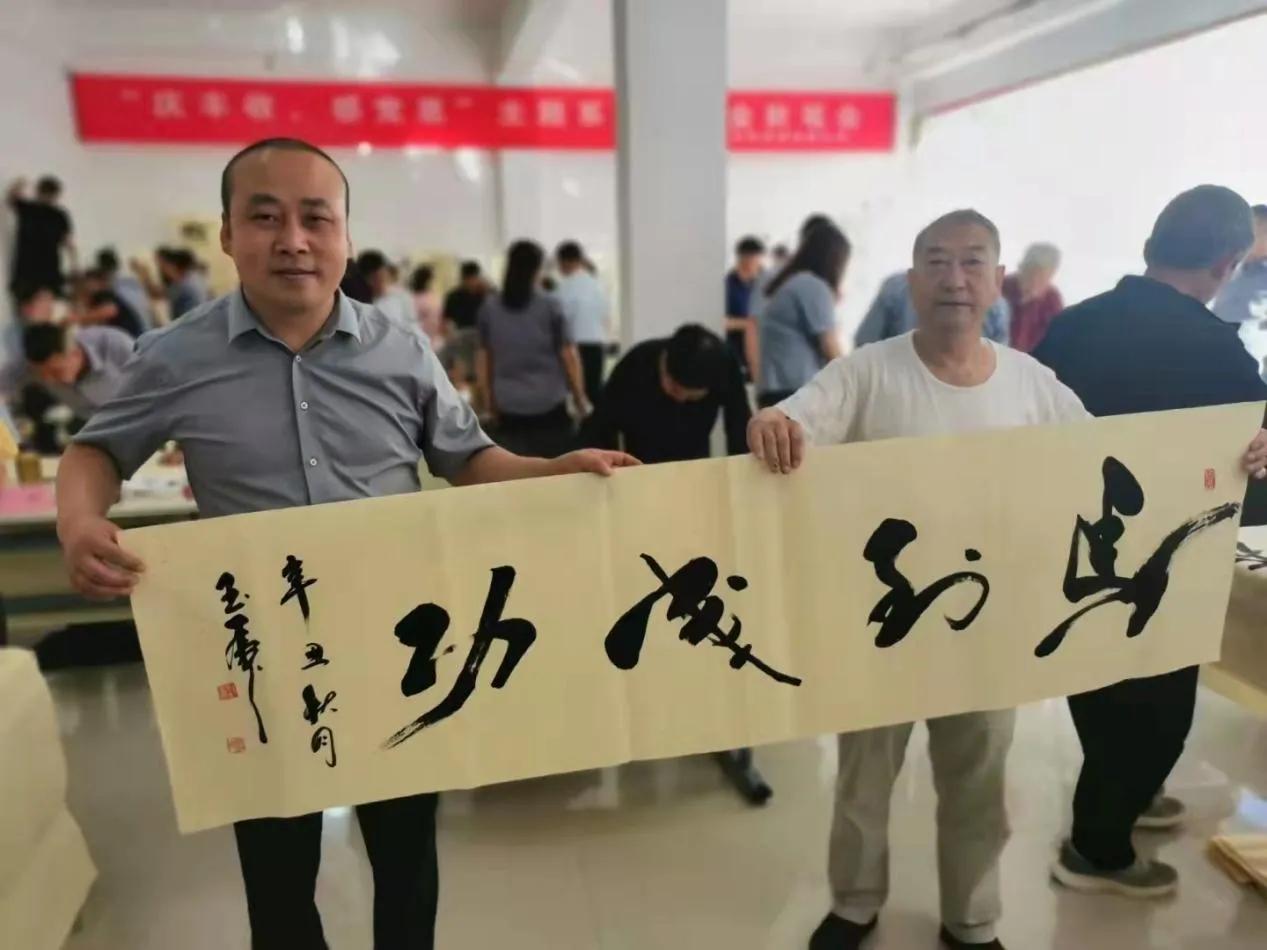 "庆丰收、感党恩"主题系
笔会
馬到成功
辛丑秋月
玉虎